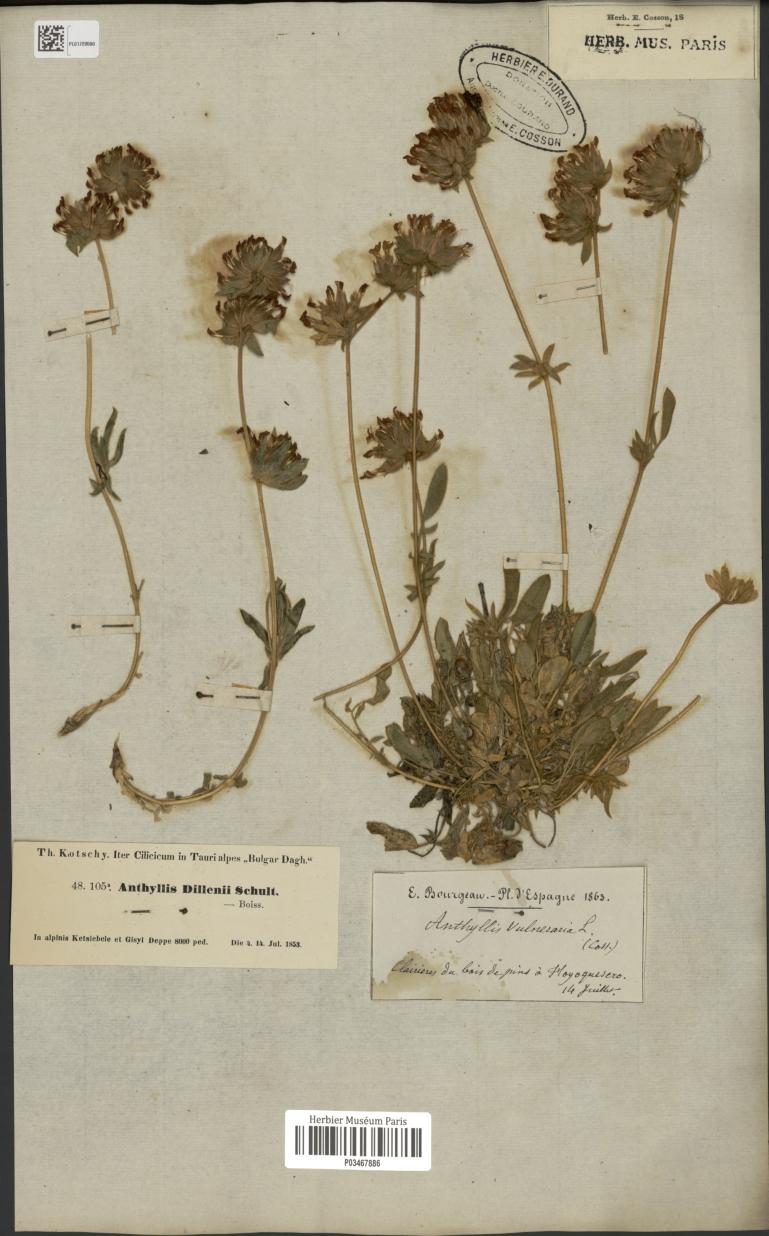 Herb. E. Cosson, 18
HERB. MUS. PARIS
HERBIER E. DURAND
DONATION
E. COSSON
Th. Kotschy. Iter Cilicicum in Tauri alpes „Bulgar Dagh.“
48. 105ᵃ. Anthyllis Dillenii Schult.
— Boiss.
In alpinis Ketsiebele et Gisyl Deppe 8000 ped. Die 4. 14. Jul. 1853.
E. Bourgeau. - Pl. d'Espagne 1863.
Anthyllis Vulneraria L.
(Coss.)
Clairières du bois de pins à Hoyoquesero.
14 Juillet.
Herbier Muséum Paris
P03467886